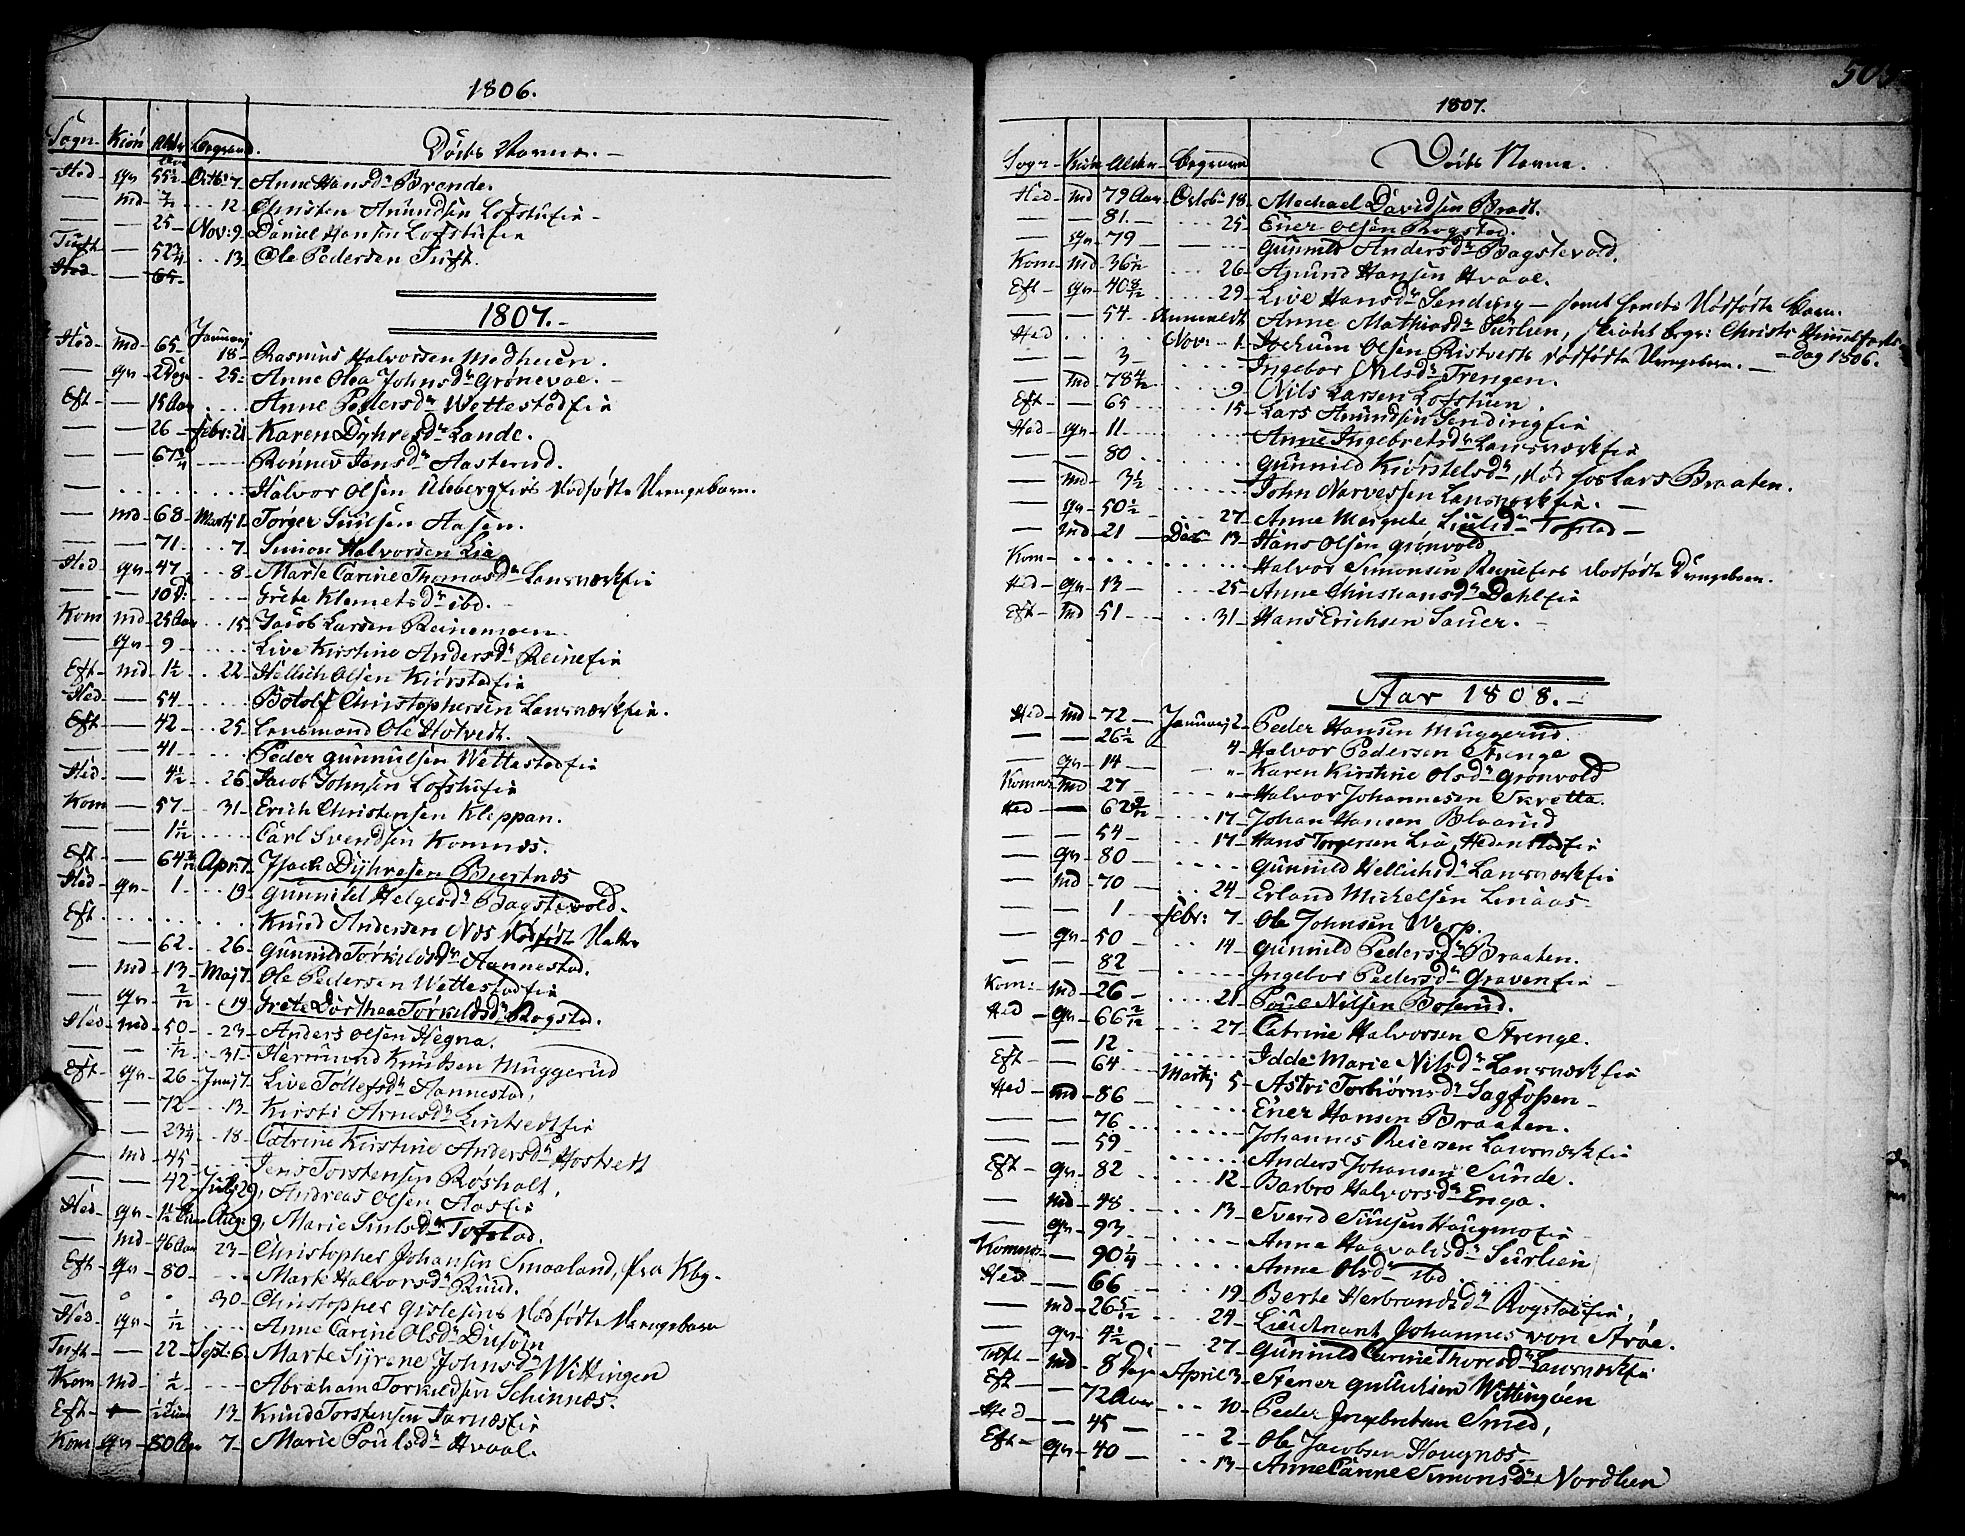 1806.
Sogn Kiøn Alder Begravd. Døds Navne.
Hed - qv 55 1/2 Octb: 7 Anne Hansd: Brende.
— md 7/12 12 Christen Amundsen Lofstufeie
— — 25 Nov: 9 Daniel Hansen Lofstufeie
Tuft — 52 3/4 13 Ole Pedersen Tuft.
Hed — 65
1807.
Hed - md 65 Januarj 18 Rasmus Halvorsen Medheien.
— qv 2 Dage 25 Anne Olea Johnsd: Grønevol.
Eft — 15 Aar Anne Pedersd: Wettestadeie
— — 26 Febr: 21 Karen Dyhresd: Lande.
— — 67 3/4 Rønnev Jensd: Aasterud.
Halvor Olsen Ulebergeies Dødfødte Drengebarn.
— md 68 Martj 1 Torger Siulsen Aasen.
— — 71 7 Simon Halvorsen Lia
Hed - qv 47 8 Marte Carine Thomasd: Lansværkeie
— — 10 D: Grete Klemetsd: ibd.
Kom md 25 Aar 15 Jacob Larsen Reinemoen.
— qv 9 Live Kirstine Andersd: Reineeie
Eft md 1 1/2 22 Hellich Olsen Kiørstadeie
Hed — 54 Botolf Christophersen Lansværkeie.
Eft — 42 25 Lensmand Ole Hotvedt.
— — 41 Peder Gunnulsen Wettestadeie
Hed — 4 1/2 26 Jacob Johnsen Lofstufeie
Kom — 57 31 Erich Christensen Klippan.
— — 1 1/2 Carl Svendsen Komnæs.
Eft — 64 Apr: 1 Isach Dyhresen Buertnæs
Hed qv 1 19 Gunnild Helgesd: Bagstevold.
Eft Knud Andersen Næs Dødfødte Datter
— — 62 26 Gunnild Torkildsd: Aannestad.
— md 13 Maj 7 Ole Pedersen Wettestadeie
— qv 2/12 19 Grete Dorthea Torkildsd: Rogstad.
Hed md 50 23 Anders Olsen Hegna.
— — 1/12 31 Hermund Knudsen Muggerud
Eft qv 26 Junj 7 Live Tollefsd: Aannestad.
— — 72 13 Kirsti Arnesd: Lintvedteie
— — 23 1/4 18 Catrine Kirstine Andersd: Hostvedt
— md 45 Jens Torstensen Røsholt.
— — 42 Julj 29 Andreas Olsen Aaseie
Hed qv 1 1/2 Aug: 9 Marie Siulsd: Tofstad.
— md 46 Aar 23 Christopher Johansen Smaaland, fra Kbg.
Eft qv 80 Marte Halvorsd: Ruud.
— 30 Christopher Gislesens Dødfødte Drengebarn
Hed qv 1/12 Anne Carine Olsd: Dusøjn
Tuft — 22 Sept: 6 Marte Syrene Johnsd: Wittingen
Kom md 1/2 Abraham Torkildsen Schinnæs.
Eft 13 Knud Torstensen Jarnæseie
Kom qv 80 Aar 7 Marie Poulsd: Hvaal.
505
1807.
Sogn Kiøn Alder Begravne Døds Navne.
Hed md 79 Aar Octob: 18 Mechael Davidsen Bradt.
— — 81 25 Ener Olsen Rogstad.
— qv 79 Gunnild Andersd: Bagstevold.
Kom md 36 1/2 26 Amund Hansen Hvaal.
Eft qv 40 8/12 29 Live Hansd: Sending — samt hendes Dødfødte Barn.
— — 54 Anmeldt Anne Mathiasd: Surlien, skiønt begr: Christi Himmelfarts-
Hed Nov: 1 Jochum Olsen Ristvedts Dødfødte Drengebarn. — Dag 1806.
— — 3 Ingebor Nilsd: Trengen.
— md 78 4/12 9 Nils Larsen Lofstuen
Eft — 65 15 Lars Amundsen Sendingeie
Hed qv 11 Anne Ingebretsd: Lansværkeie
— — 80 Gunnild Kiørstelsd: Død hos Lars Braaten.
— md 3 1/2 John Narvessen Lansværkeie.
— qv 50 1/2 27 Anne Margrete Liulsd: Tofstad
— md 21 Dec 13 Hans Olsen Grønvold
Kom Halvor Simonsen Reineeies Dødfødte Drengebarn.
Hed qv 13 25 Anne Christiansd: Dahleie
Eft md 51 31 Hans Erichsen Sauer.
Aar 1808.
Hed md 72 Januarj 2 Peder Hansen Muggerud.
— — 26 1/2 4 Halvor Pedersen Strenge
— qv 14 " Karen Kirstine Olsd: Grønvold
Komnæs md 27 " Halvor Johannesen Skretta.
Hed — 62 17 Johan Hansen Blaarud
— — 54 17 Hans Torgersen Lia, Hedenstadeie
— qv 80 Gunnild Hellichsd: Lansværkeie
— md 70 24 Erland Michelsen Linaas
— — 1 Febr: 7 Ole Johnsen Werp.
— qv 50 14 Gunnild Pedersd: Braaten.
— — 82 Ingebor Pedersd: Graveneie
Kom: md 26 21 Poul Nilsen Boserud.
Hed qv 66 2/12 27 Catrine Halvorsen Strenge.
— — 12 Idde Marie Nilsd: Lansværkeie
Eft — 64 Martj 5 Astri Torbiørnsd: Sagfossen
Hed md 86 Ener Hansen Braaten.
— — 76 Johannes Reiersen Lansværkeie
— — 59 Anders Johansen Sunde.
Eft qv 82 12 Barbro Halvorsd: Enga.
— md 48 13 Svend Siulsen Haugmoeie
— qv 93 Anne Haavaldsd: Surlien
Komnæs — 90 1/4 Anne Olsd: ibd
Hed — 66 19 Berte Herbrandsd: Rogstadeie
— md 26 5/12 24 Lieutnant Johannes von Strøe.
— qv 4 1/2 27 Gunnild Carine Thoresd: Lansværkeie
Tuft md 8 Dage April 3 Stener Gulliksen Wittingøien
Eft — 72 Aar 10 Peder Ingebretsen Smed,
Hed — 45 2 Ole Jacobsen Haugnæs
Eft qv 40 13 Anne Carine Simonsd: Nordlien